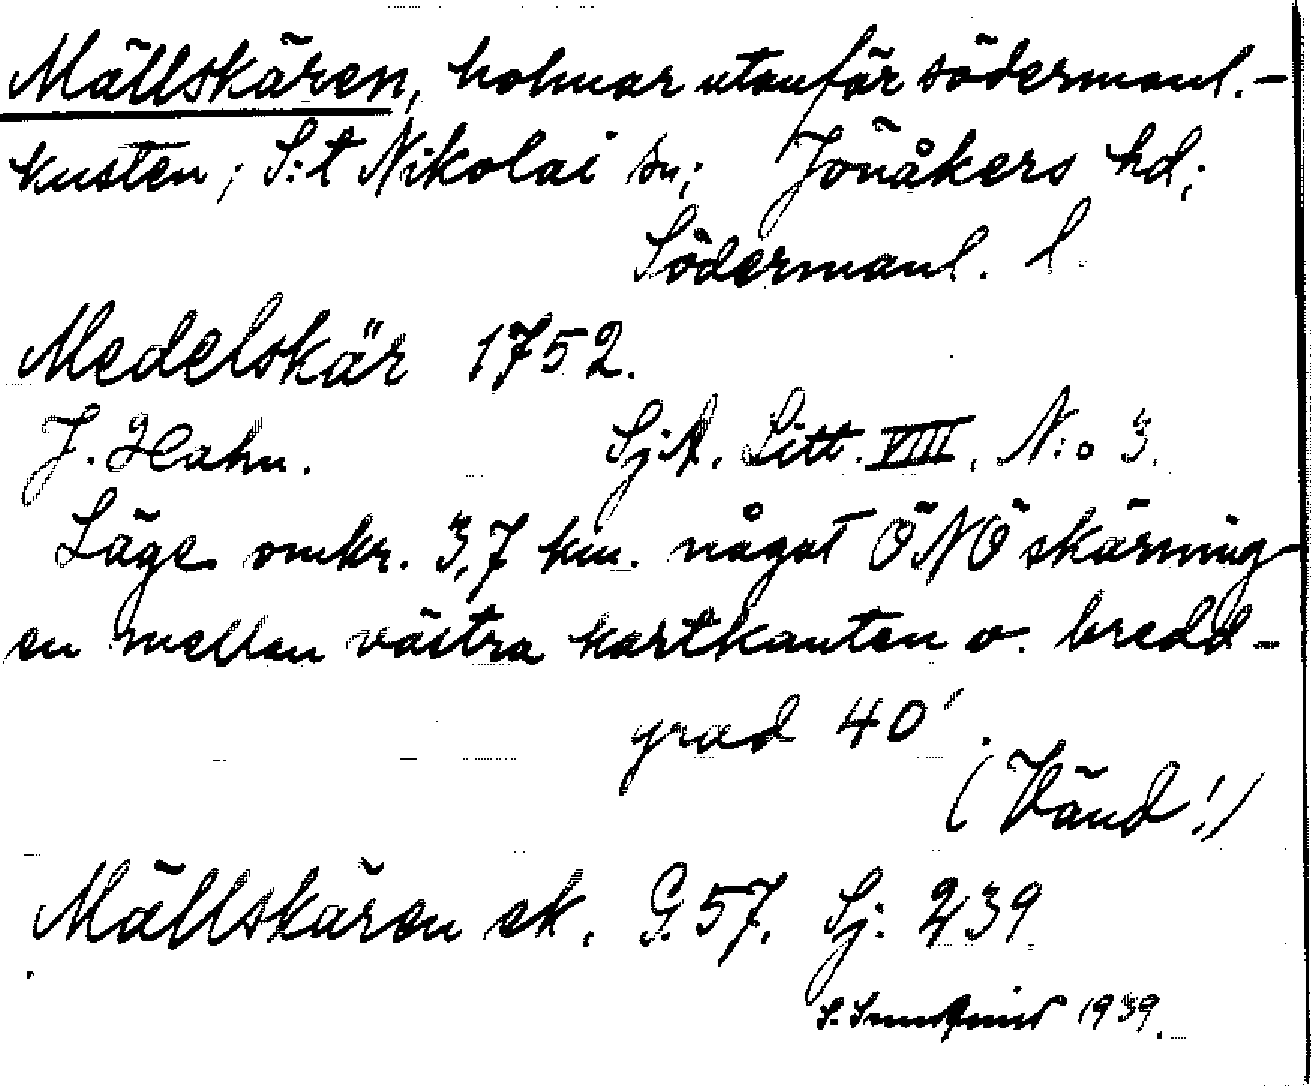 Mällskären, holmar utanför södermanl.-
kusten; S:t Nikolai sn; Jönåkers hd;
Södermanl. l.
Medelskär 1752.
J. Hahn. SjA. Litt. VIII, N:o 3.
Läge omkr. 3,7 km. något ÖNÖ skärning-
en mellan västra kartkanten o. bredd-
grad 40'.
(Vänd!)
Mällskären ek. G.57. Sj: 239
S. 1939.